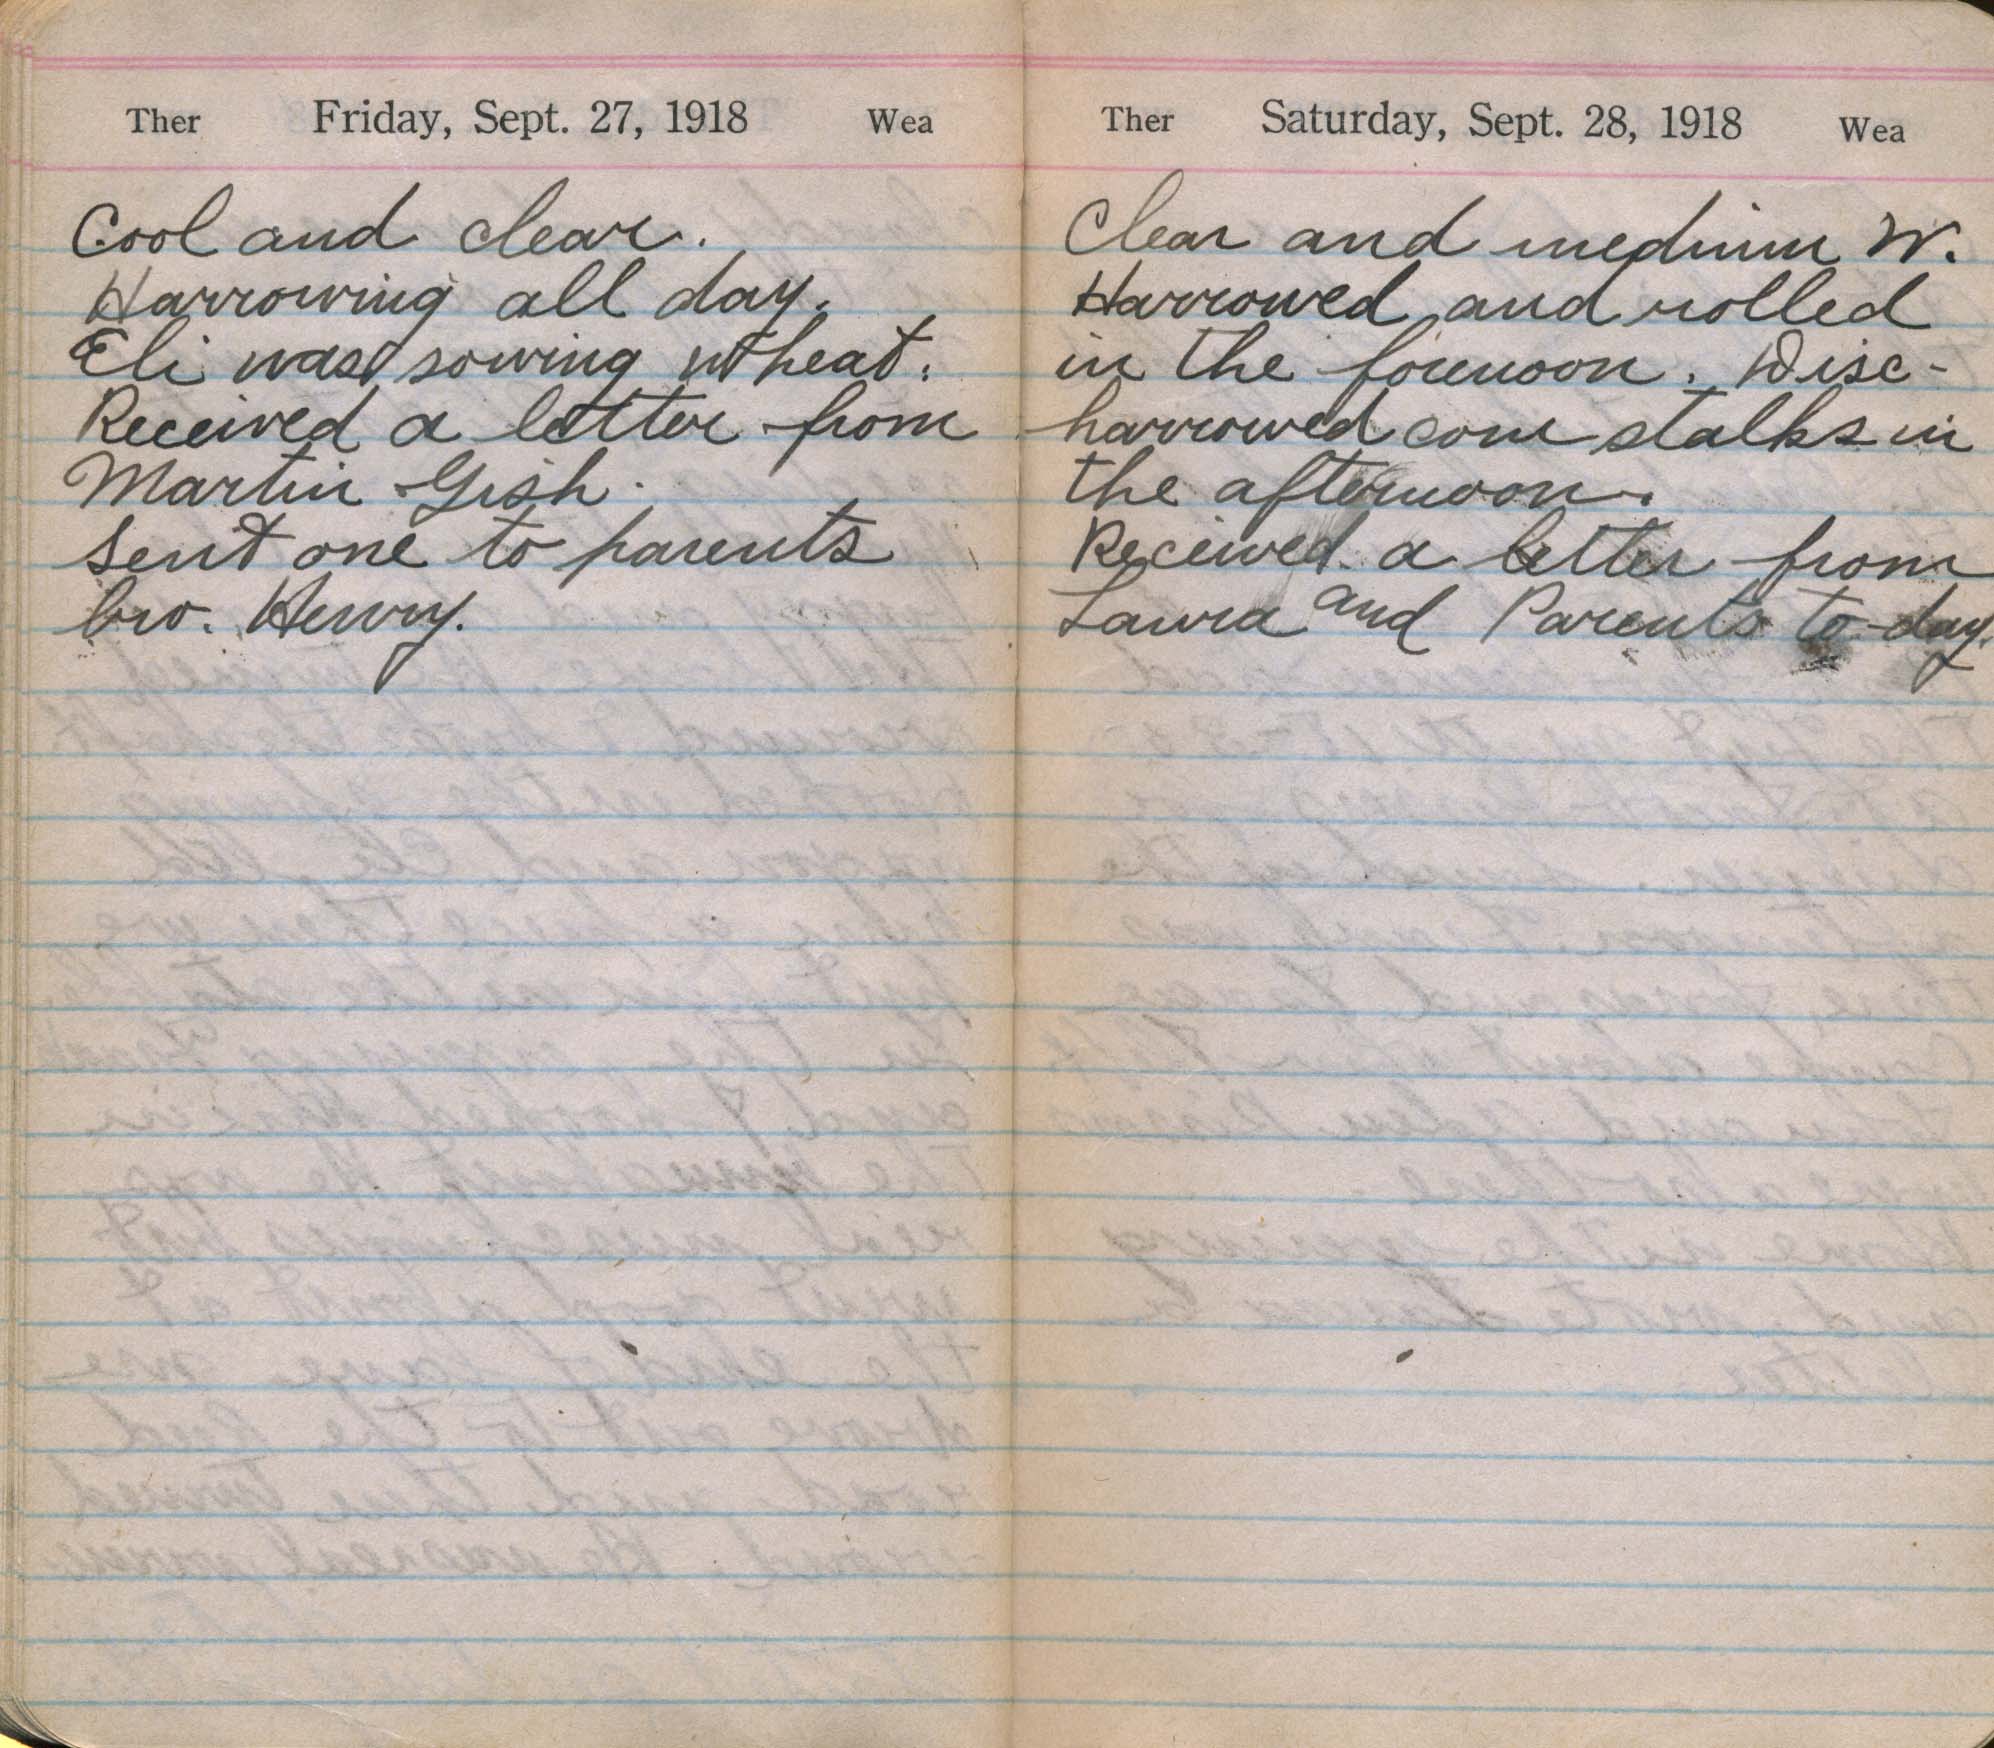 Ther Friday, Sept. 27, 1918 Wea
Cool and clear.
Harrowing all day.
Eli was sowing wheat.
Received a letter from
Martin Gish.
Sent one to parents
bro. Henry.
Ther Saturday, Sept. 28, 1918 Wea
Clear and medium W.
Harrowed and rolled
in the forenoon. Disc-
harrowed corn stalks in
the afternoon.
Received a letter from
Laura and Parents to-day.